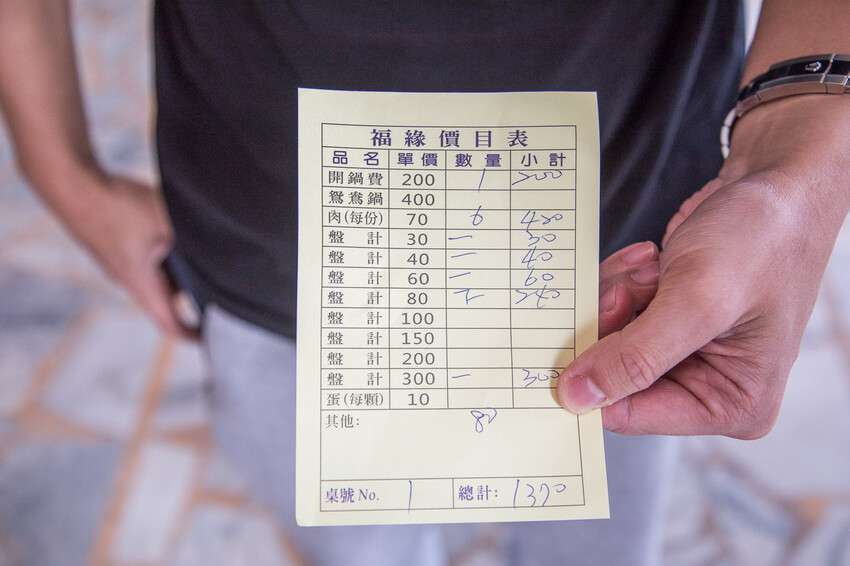 福緣價目表
品名 單價 數量 小計
開鍋費 200 1 200
鴛鴦鍋 400
肉(每份) 70 6 420
盤計 30 一 30
盤計 40 一 40
盤計 60 一 60
盤計 80 下 240
盤計 100
盤計 150
盤計 200
盤計 300 一 300
蛋(每顆) 10
其他: 80
桌號 No. 1 總計: 1370